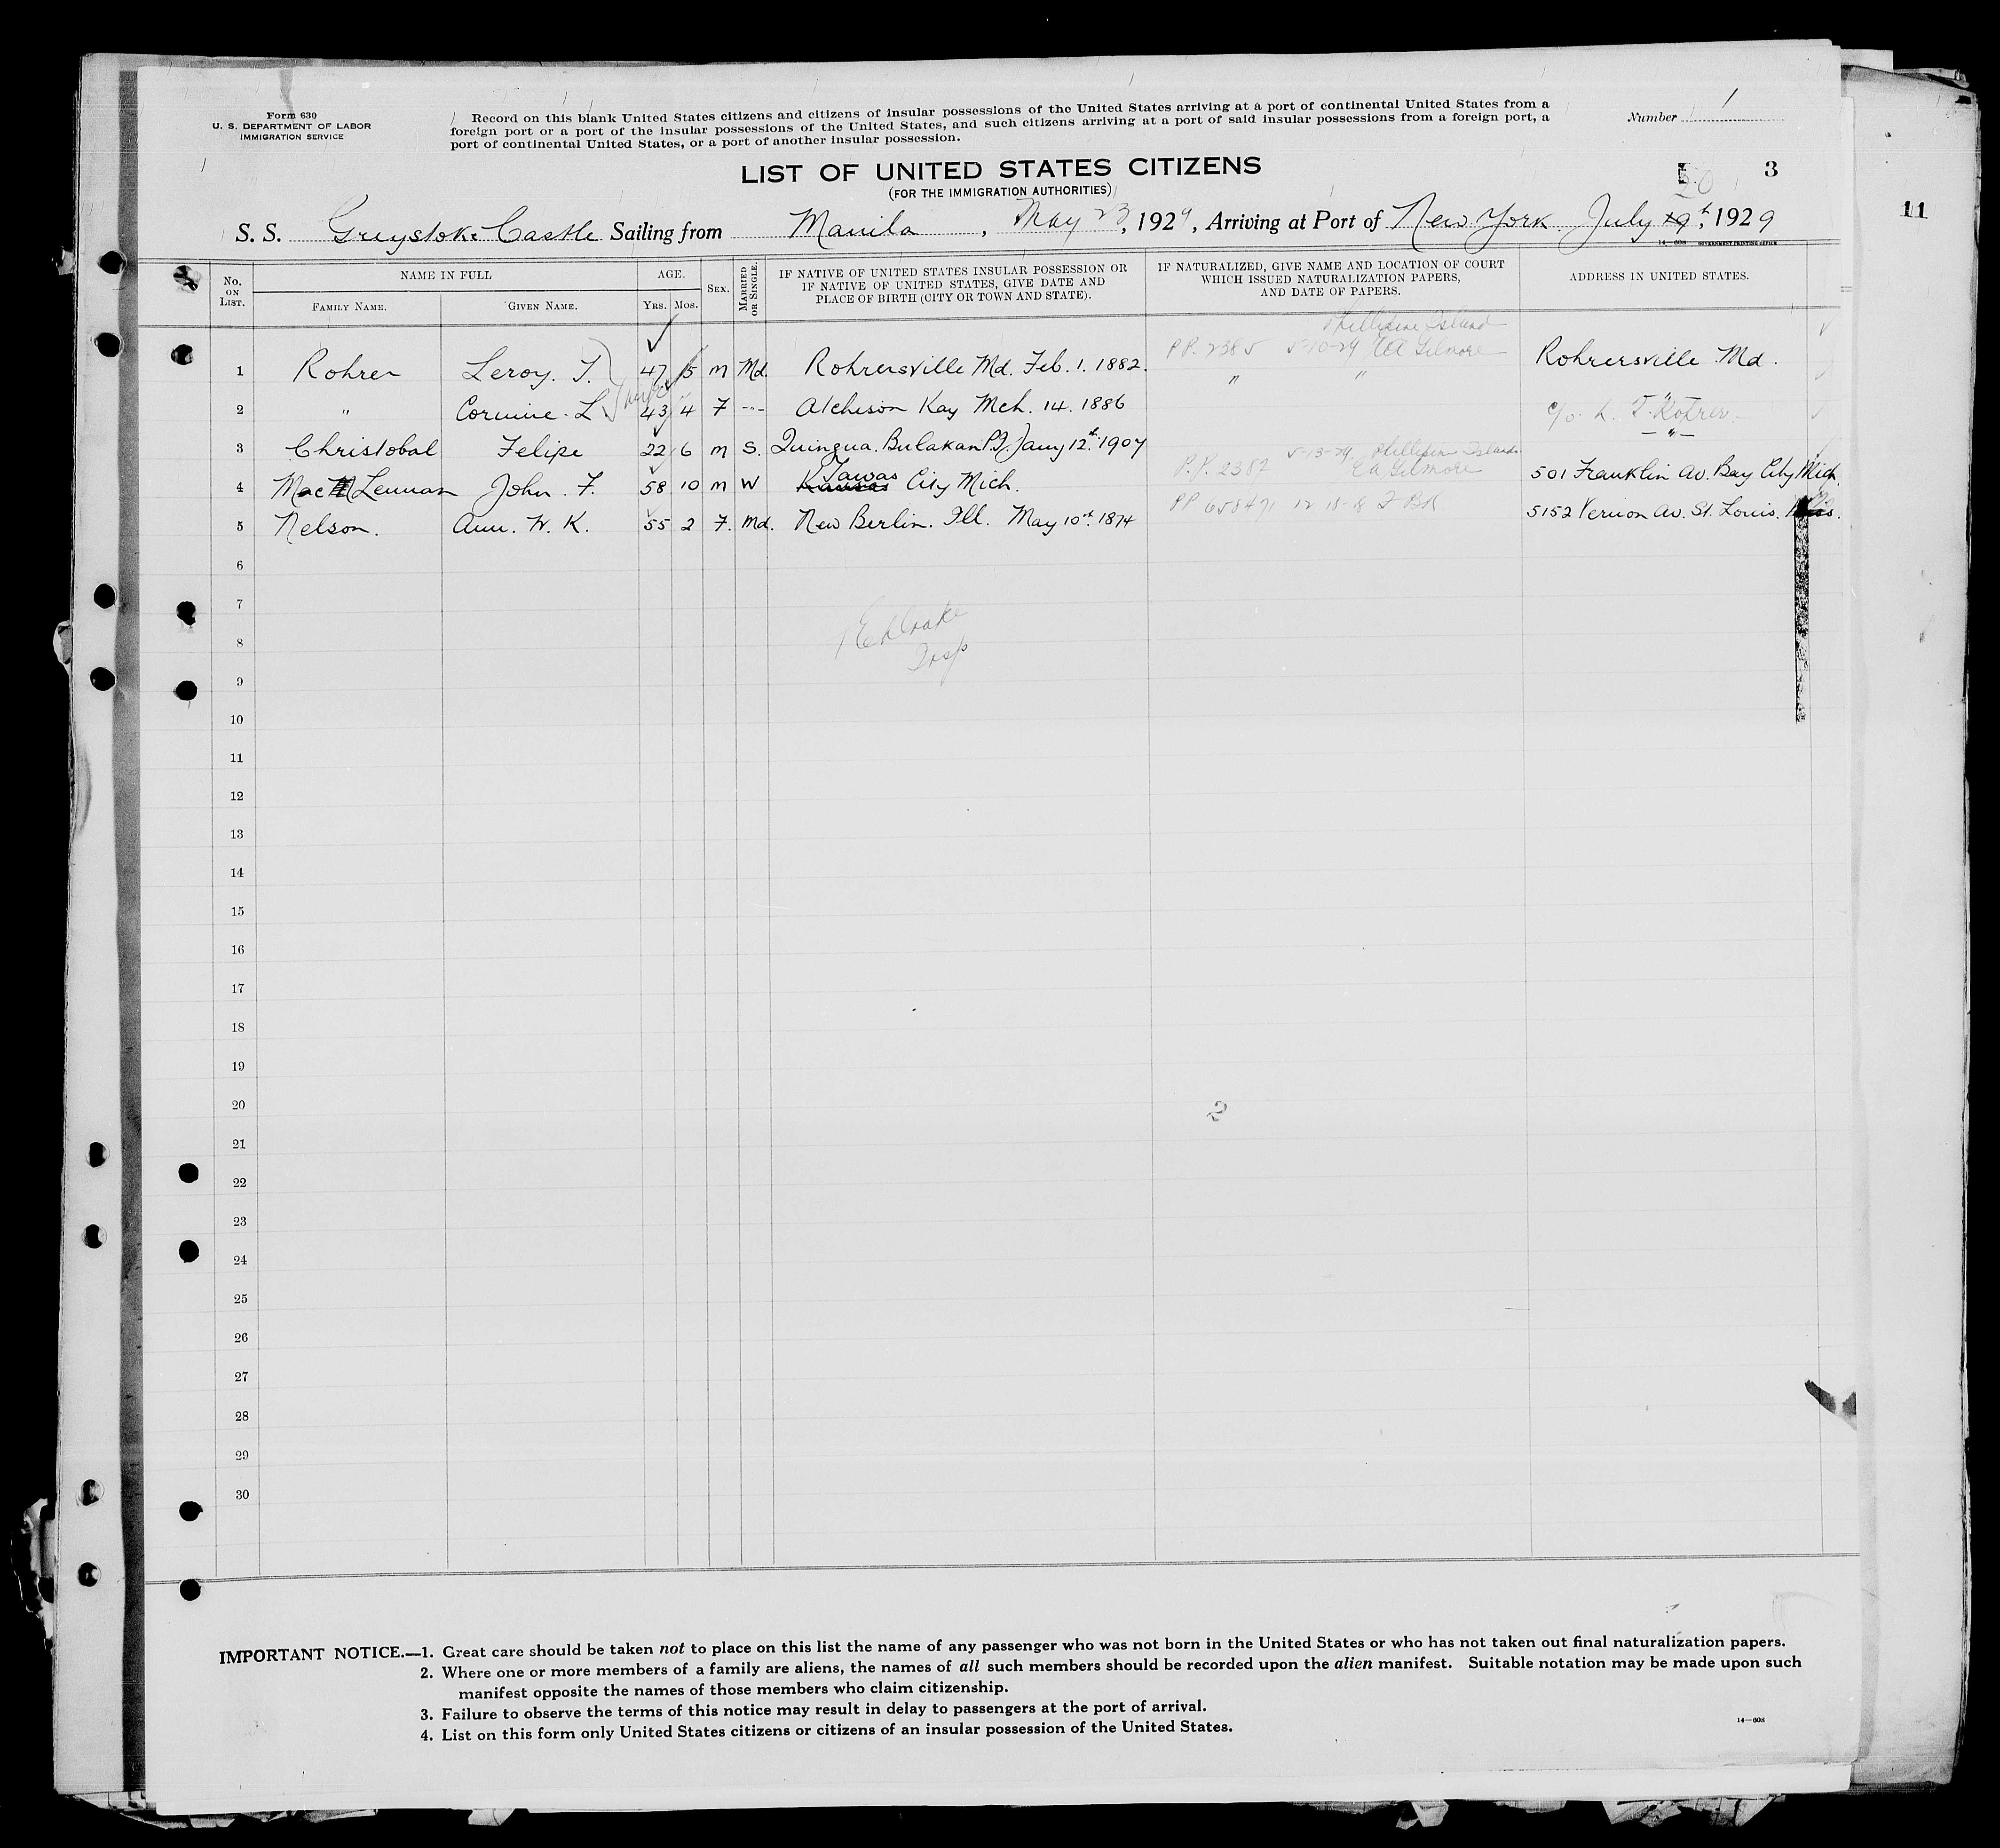 Form 630
U. S. DEPARTMENT OF LABOR
IMMIGRATION SERVICE
Record on this blank United States citizens and citizens of insular possessions of the United States arriving at a port of continental United States from a
foreign port or a port of the insular possessions of the United States, and such citizens arriving at a port of said insular possessions from a foreign port, a
port of continental United States, or a port of another insular possession.
Number 1
LIST OF UNITED STATES CITIZENS
(FOR THE IMMIGRATION AUTHORITIES)
20 3
11
S. S. Greystoke Castle Sailing from Manila, May 23, 1929, Arriving at Port of New York July 19th, 1929
14—608 GOVERNMENT PRINTING OFFICE
No. ON LIST. NAME IN FULL FAMILY NAME. GIVEN NAME. AGE. YRS. MOS. SEX. MARRIED OR SINGLE. IF NATIVE OF UNITED STATES INSULAR POSSESSION OR IF NATIVE OF UNITED STATES, GIVE DATE AND PLACE OF BIRTH (CITY OR TOWN AND STATE). IF NATURALIZED, GIVE NAME AND LOCATION OF COURT WHICH ISSUED NATURALIZATION PAPERS, AND DATE OF PAPERS. ADDRESS IN UNITED STATES.
Phillipine Island
1 Rohrer Leroy. T. 47 5 m Md. Rohrersville Md. Feb. 1. 1882. P.P. 2385 5-10-29 EA Gilmore Rohrersville Md.
wife
2 " Corinne. L 43 4 F -"- Atchison Kay Mch. 14. 1886 " " c/o. L. T. Rohrer
-"-
3 Christobal Felipe 22 6 m S. Quingua. Bulakan P.I. Jany 12th 1907 P.P. 2387 5-13-29 Phillipin Islands EA Gilmore
4 Mac Lennan John. F. 58 10 m W Kansas Tawas City Mich. 501 Franklin Av. Bay City Mich.
5 Nelson. Ann. W. K. 55 2 F. Md. New Berlin. Ill. May 10th. 1874 PP 658471 12-18-8 5152 Vernon Av. St. Louis.
6
7
8
Insp
9
10
11
12
13
14
15
16
17
18
19
20
2
21
22
23
24
25
26
27
28
29
30
IMPORTANT NOTICE.—1. Great care should be taken not to place on this list the name of any passenger who was not born in the United States or who has not taken out final naturalization papers.
2. Where one or more members of a family are aliens, the names of all such members should be recorded upon the alien manifest. Suitable notation may be made upon such
manifest opposite the names of those members who claim citizenship.
3. Failure to observe the terms of this notice may result in delay to passengers at the port of arrival.
4. List on this form only United States citizens or citizens of an insular possession of the United States.
14—608